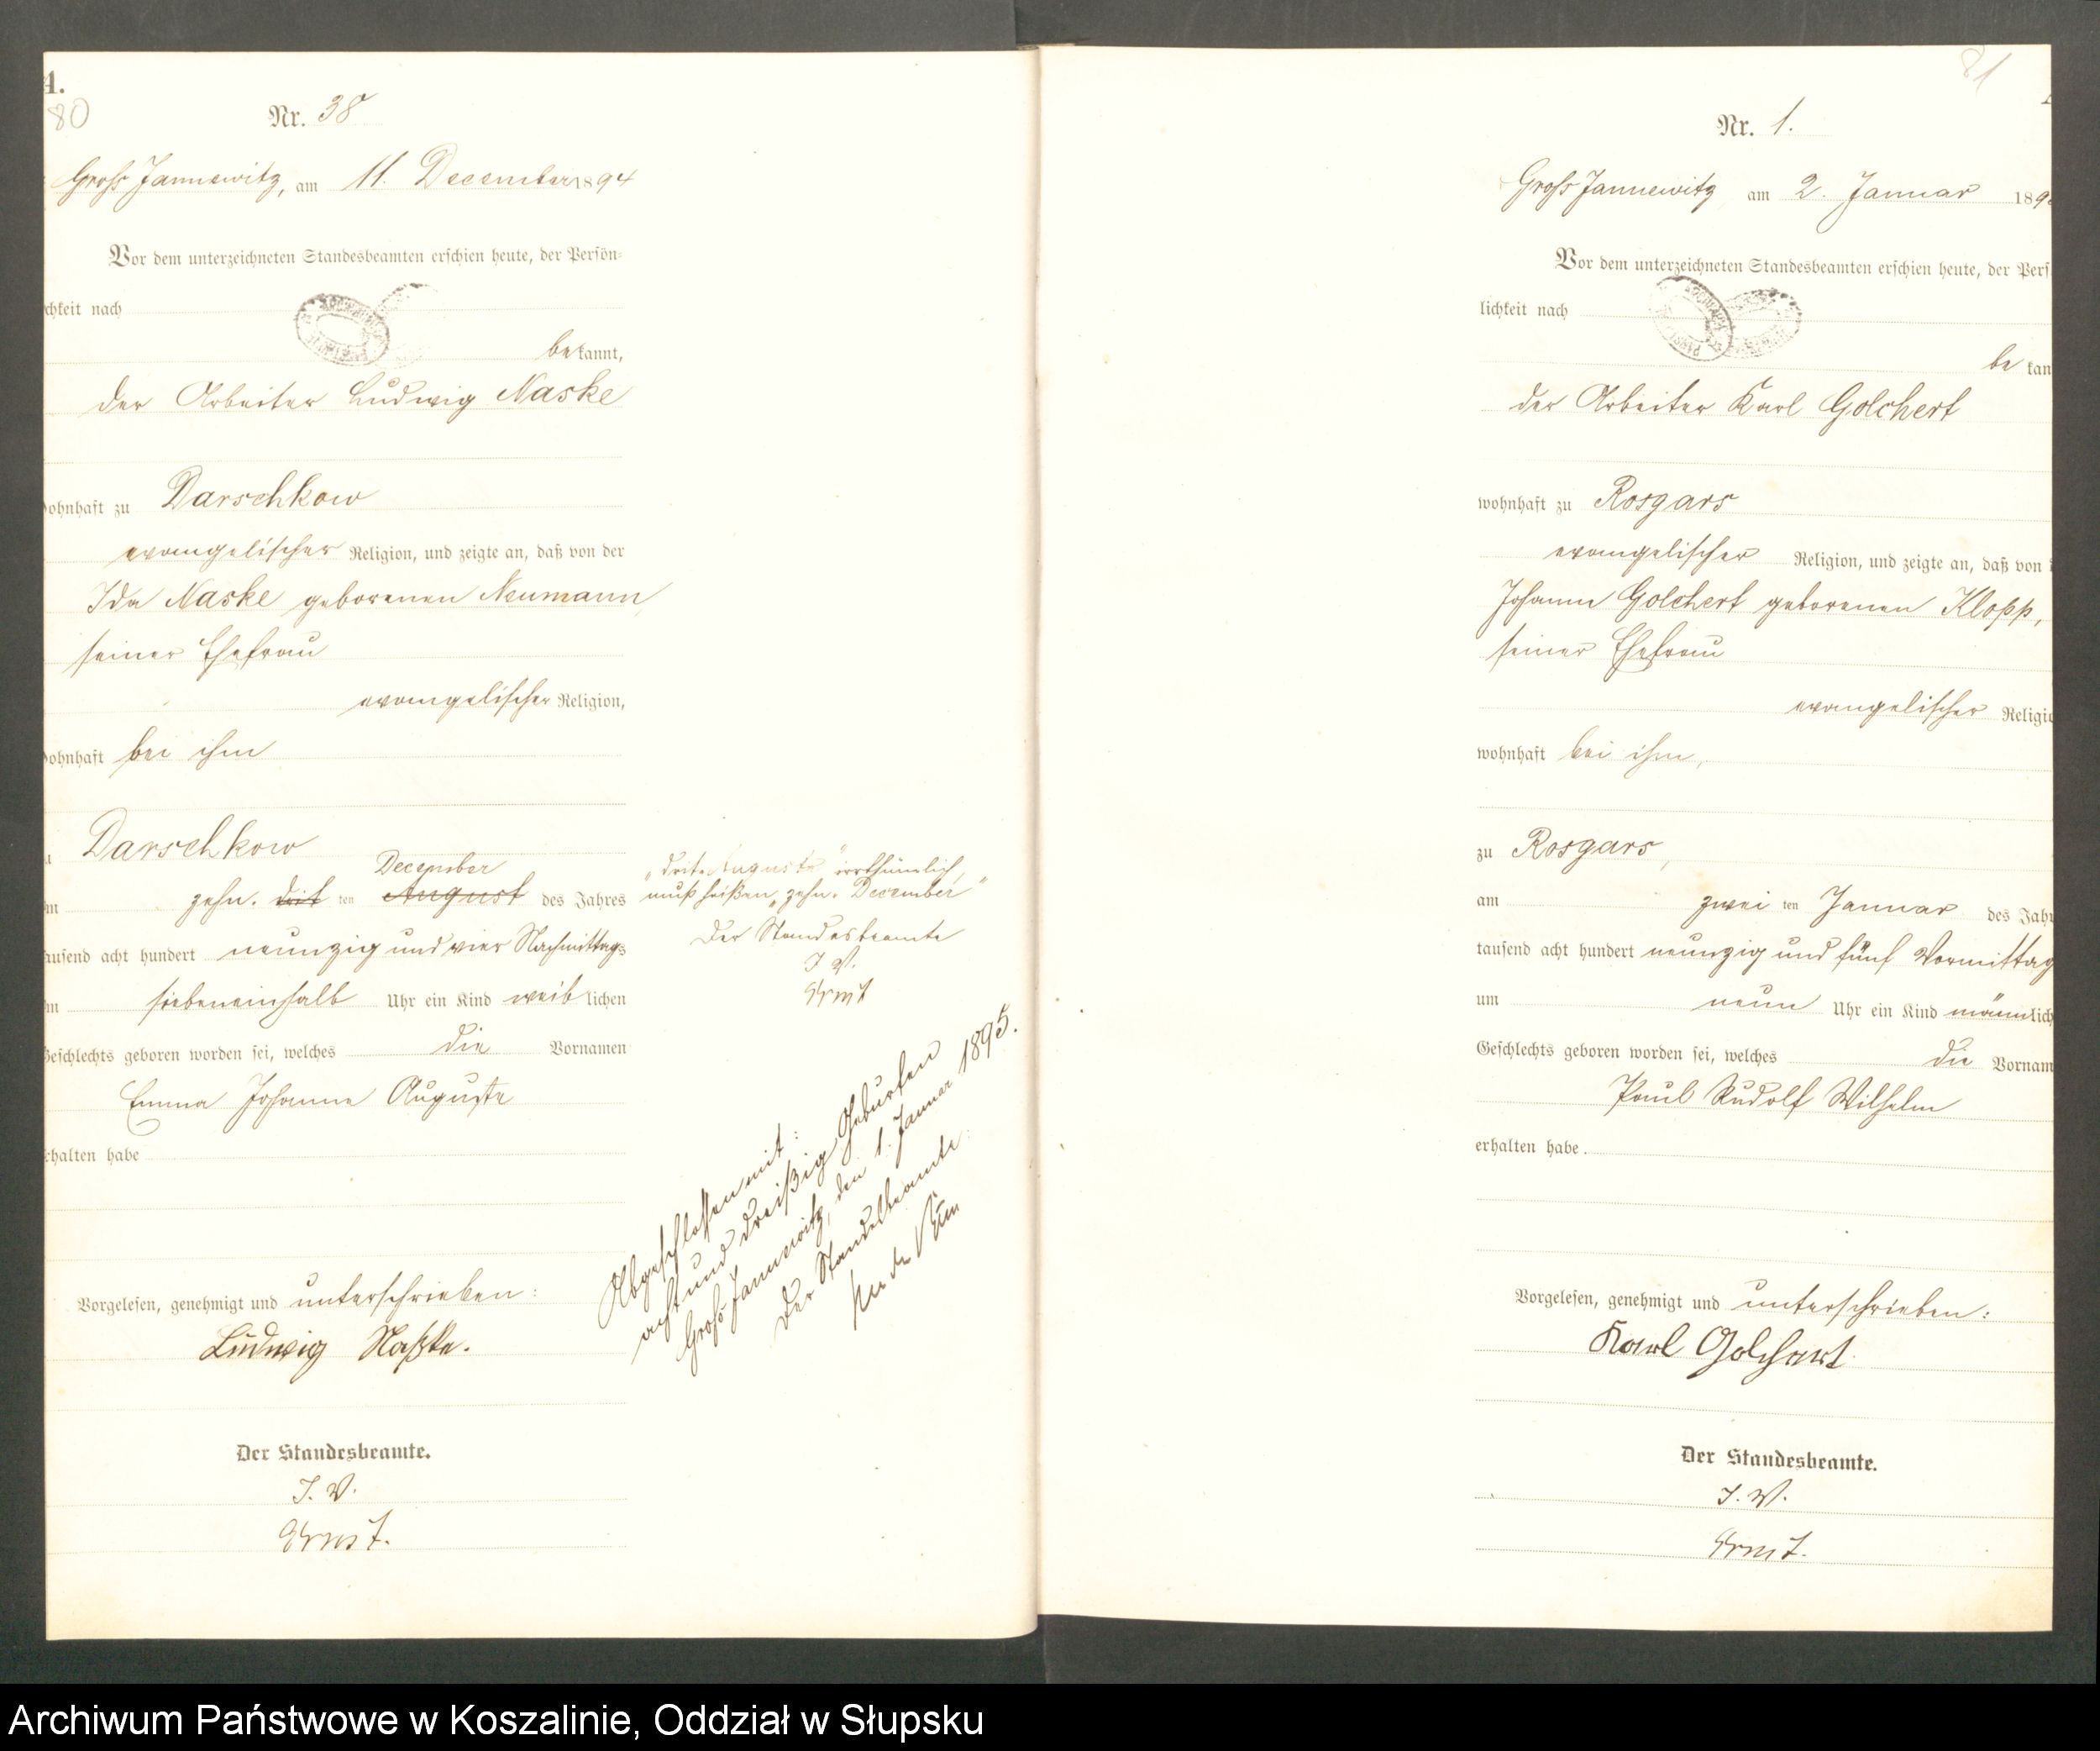 1.
80
Nr. 38
Gross Jannewitz, am 11. December 1894
Vor dem unterzeichneten Standesbeamten erschien heute, der Persön-
chkeit nach
bekannt,
der Arbeiter Ludwig Naske
ohnhaft zu Darschkow
evangelischer Religion, und zeigte an, daß von der
Ida Naske geborenen Neumann,
seiner Ehefrau
evangelischer Religion,
ohnhaft bei ihm
Darschkow
December
zehn. drit ten August des Jahres
ausend acht hundert neunzig und vier Nachmittags
m siebeneinhalb Uhr ein Kind weiblichen
Geschlechts geboren worden sei, welches die Vornamen
Emma Johanne Auguste
rhalten habe
Vorgelesen, genehmigt und unterschrieben:
Ludwig Naßke.
Der Standesbeamte.
I. V.
Ernst.
„drit. August" irrthümlich,
muß heißen „zehn. December"
Der Standesbeamte
I V.
Ernst
Abgeschlossen mit:
acht und dreißig Geburten
Gross Jannewitz, den 1. Januar 1895.
Der Standesbeamte
81
Nr. 1.
Gross Jannewitz am 2. Januar 189
Vor dem unterzeichneten Standesbeamten erschien heute, der Pers
lichkeit nach
be kan
der Arbeiter Karl Golchert
wohnhaft zu Rosgars
evangelischer Religion, und zeigte an, daß von
Johanne Golchert geborenen Klopp,
seiner Ehefrau
evangelischer Religi
wohnhaft bei ihm,
zu Rosgars,
am zwei ten Januar des Jah
tausend acht hundert neunzig und fünf Vormittag
um neun Uhr ein Kind männlich
Geschlechts geboren worden sei, welches die Vornam
Paul Rudolf Wilhelm
erhalten habe.
Vorgelesen, genehmigt und unterschrieben:
Karl Golchert
Der Standesbeamte.
I. V.
Ernst.
Archiwum Państwowe w Koszalinie, Oddział w Słupsku